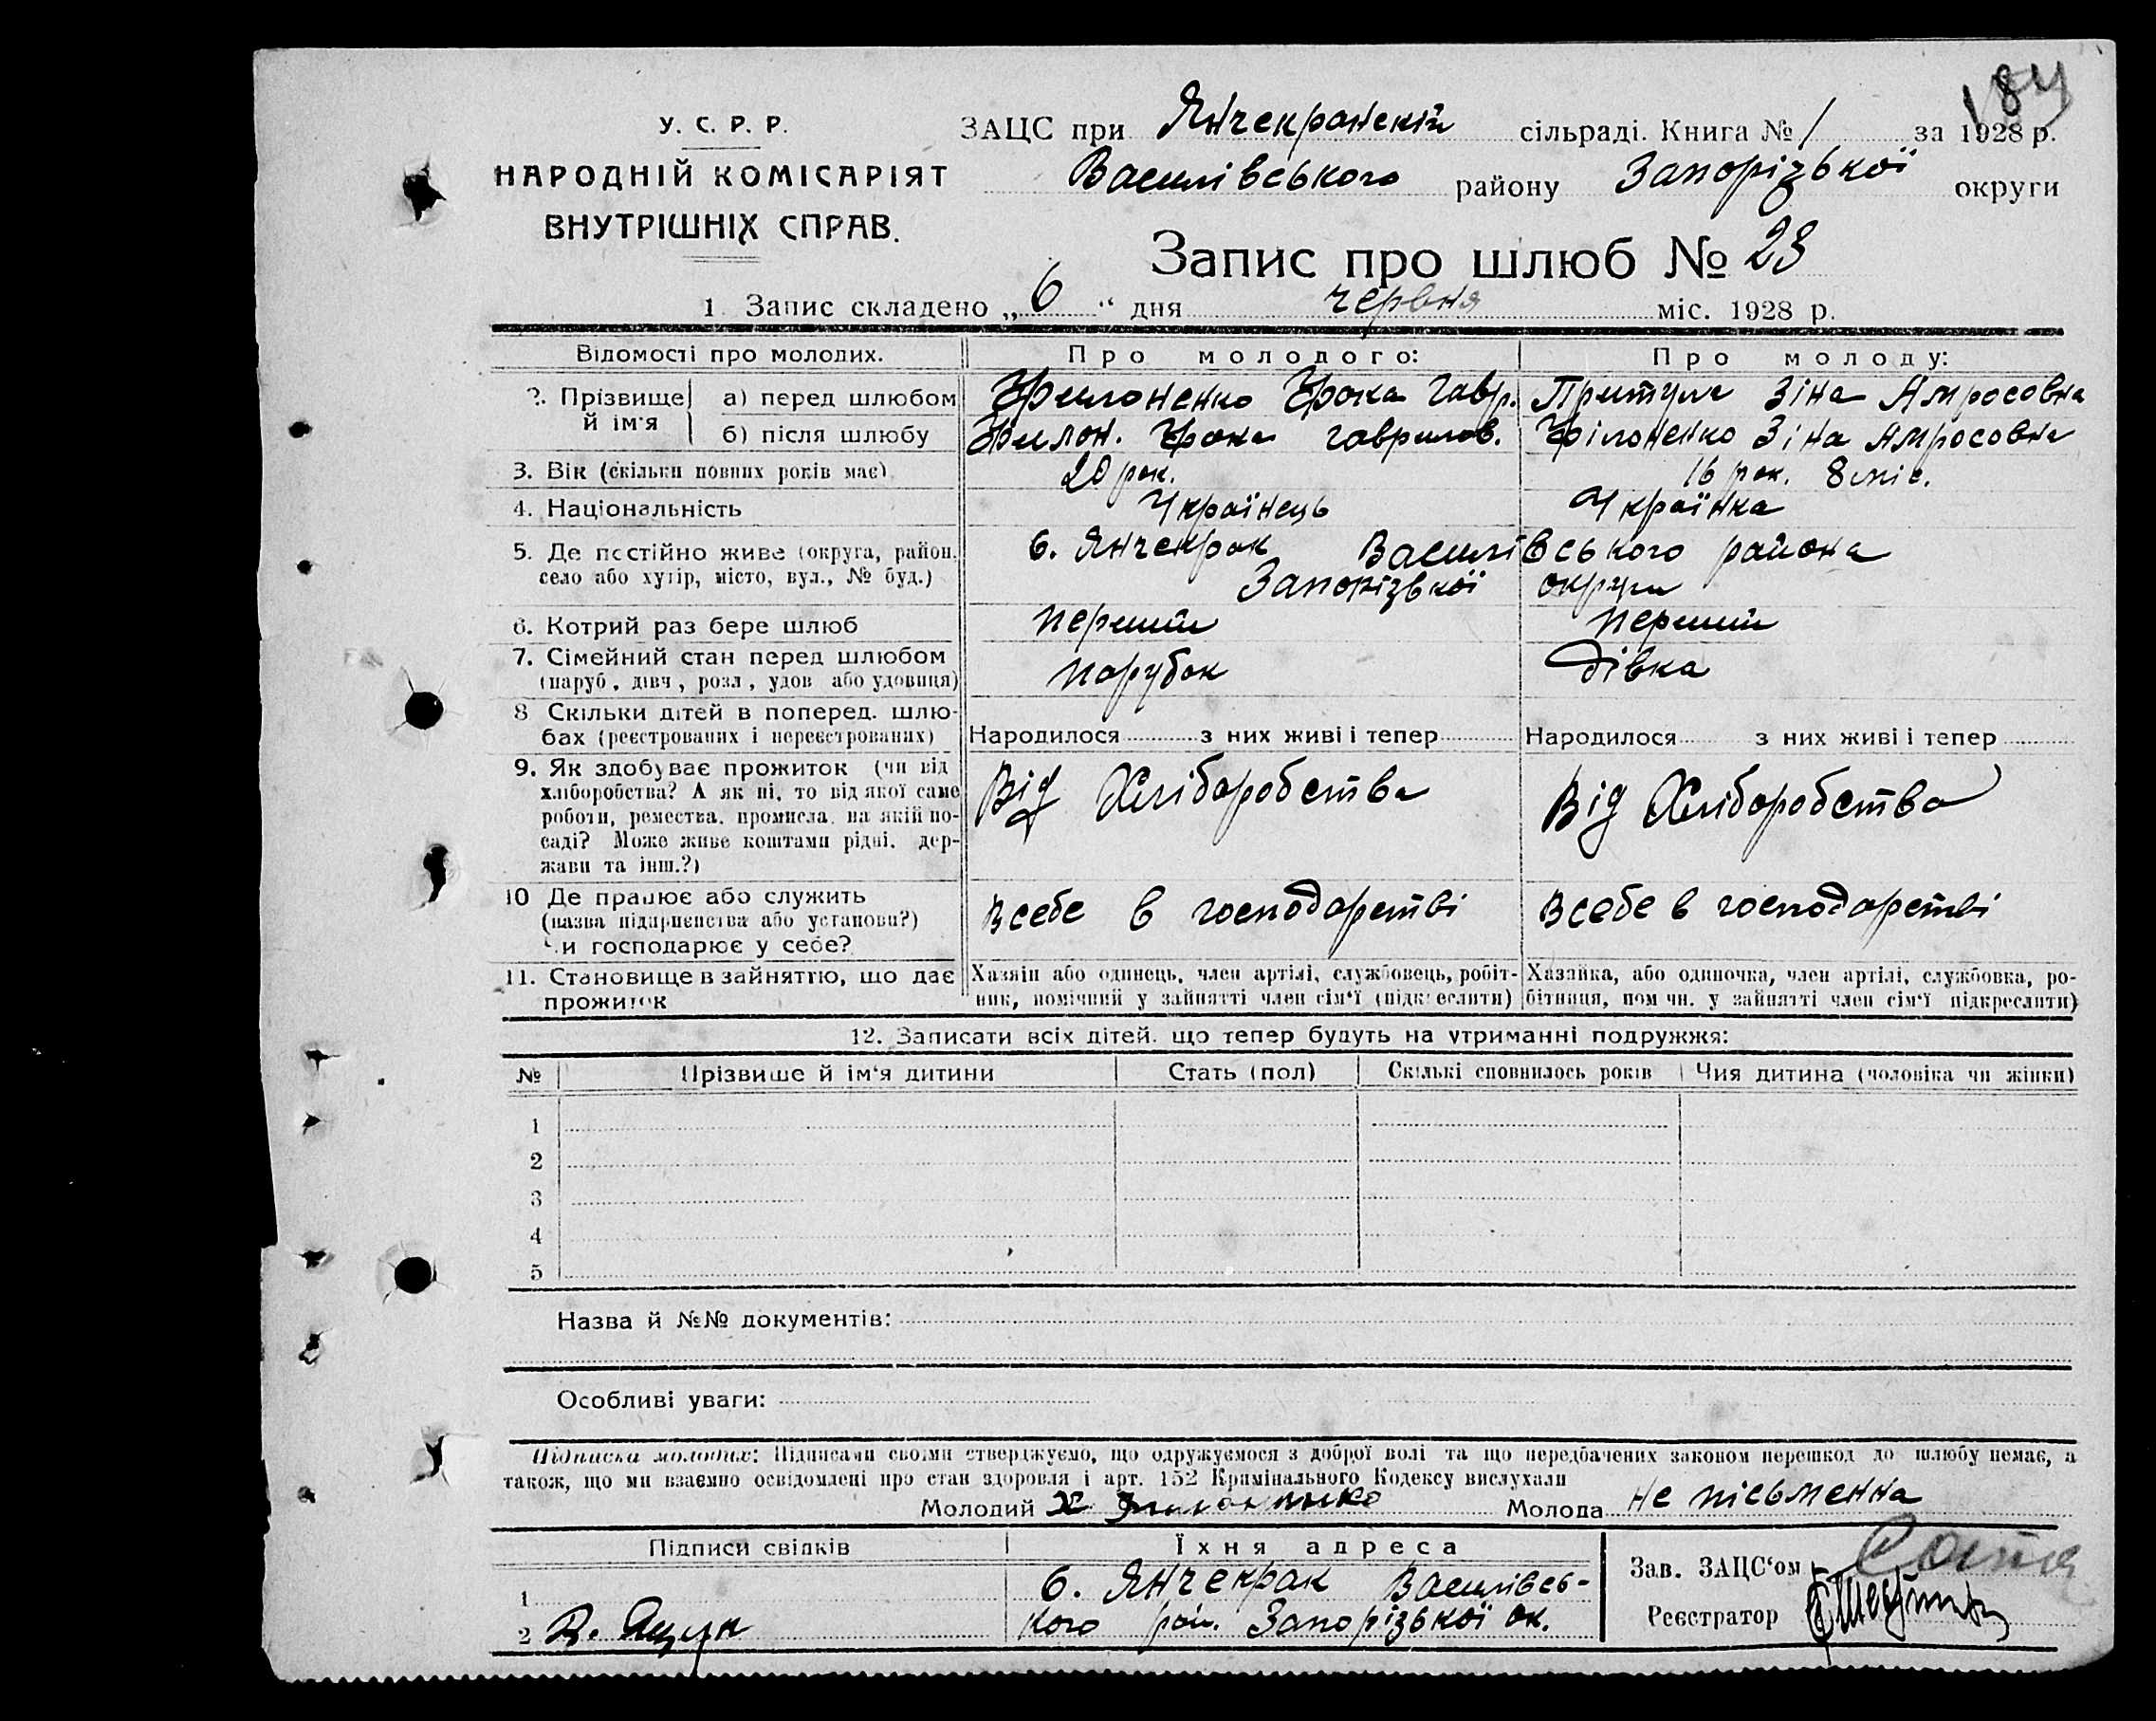 184
У. С. Р. Р.
НАРОДНІЙ КОМІСАРІЯТ
ВНУТРІШНІХ СПРАВ.
ЗАЦС при Янчекранскій сільраді. Книга № 1 за 1928 р.
Василівського району Запорізької округи
Запис про шлюб № 23
1. Запис складено „6“ дня червня міс. 1928 р.
Відомості про молодих. Про молодого: Про молоду:
2. Прізвище й ім'я
а) перед шлюбом Филоненко Фока Гавр. Притула Зіна Амросовна
б) після шлюбу Филон. Фока Гаврилов. Філоненко Зіна Амросовна
3. Вік (скільки повних років має) 20 рок. 16 рок. 8 міс.
4. Національність Українець Українка
5. Де постійно живе (округа, район, с. Янчекрак Василівського района
село або хутір, місто, вул., № буд.) Запорізької округи
6. Котрий раз бере шлюб перший перший
7. Сімейний стан перед шлюбом парубок дівка
(паруб., дівч., розл., удов. або удовиця)
8 Скільки дітей в поперед. шлю-
бах (реєстрованих і нереєстрованих) Народилося з них живі і тепер Народилося з них живі і тепер
9. Як здобуває прожиток (чи від
хліборобства? А як ні, то від якої саме Від Хліборобства Від Хліборобства
роботи, ремества, промисла, на якій по-
саді? Може живе коштами рідні, дер-
жави та інш.?)
10 Де працює або служить
(назва підприємства або установи?) В себе в господарстві В себе в господарстві
Чи господарює у себе?
11. Становище в зайняттю, що дає Хазяїн або одинець, член артілі, службовець, робіт- Хазяйка, або одиночка, член артілі, службовка, ро-
прожиток ник, помічний у зайнятті член сім'ї (підкреслити) бітниця, помічн. у зайнятті член сім'ї підкреслити)
12. Записати всіх дітей, що тепер будуть на утриманні подружжя:
№ Прізвище й ім'я дитини Стать (пол) Скількі сповнилось років Чия дитина (чоловіка чи жінки)
1
2
3
4
5
Назва й №№ документів:
Особливі уваги:
Підписка молодих: Підписами своїми стверджуємо, що одружуємося з доброї волі та що передбачених законом перешкод до шлюбу немає, а
також, що ми взаємно освідомлені про стан здоровля і арт. 152 Крамінального Кодексу вислухали
Молодий Молода не пісьменна
Підписи свідків Їхня адреса
1 с. Янчекрак Василівсь-
2 кого рай. Запорізької ок.
Зав. ЗАЦС'ом
Реєстратор